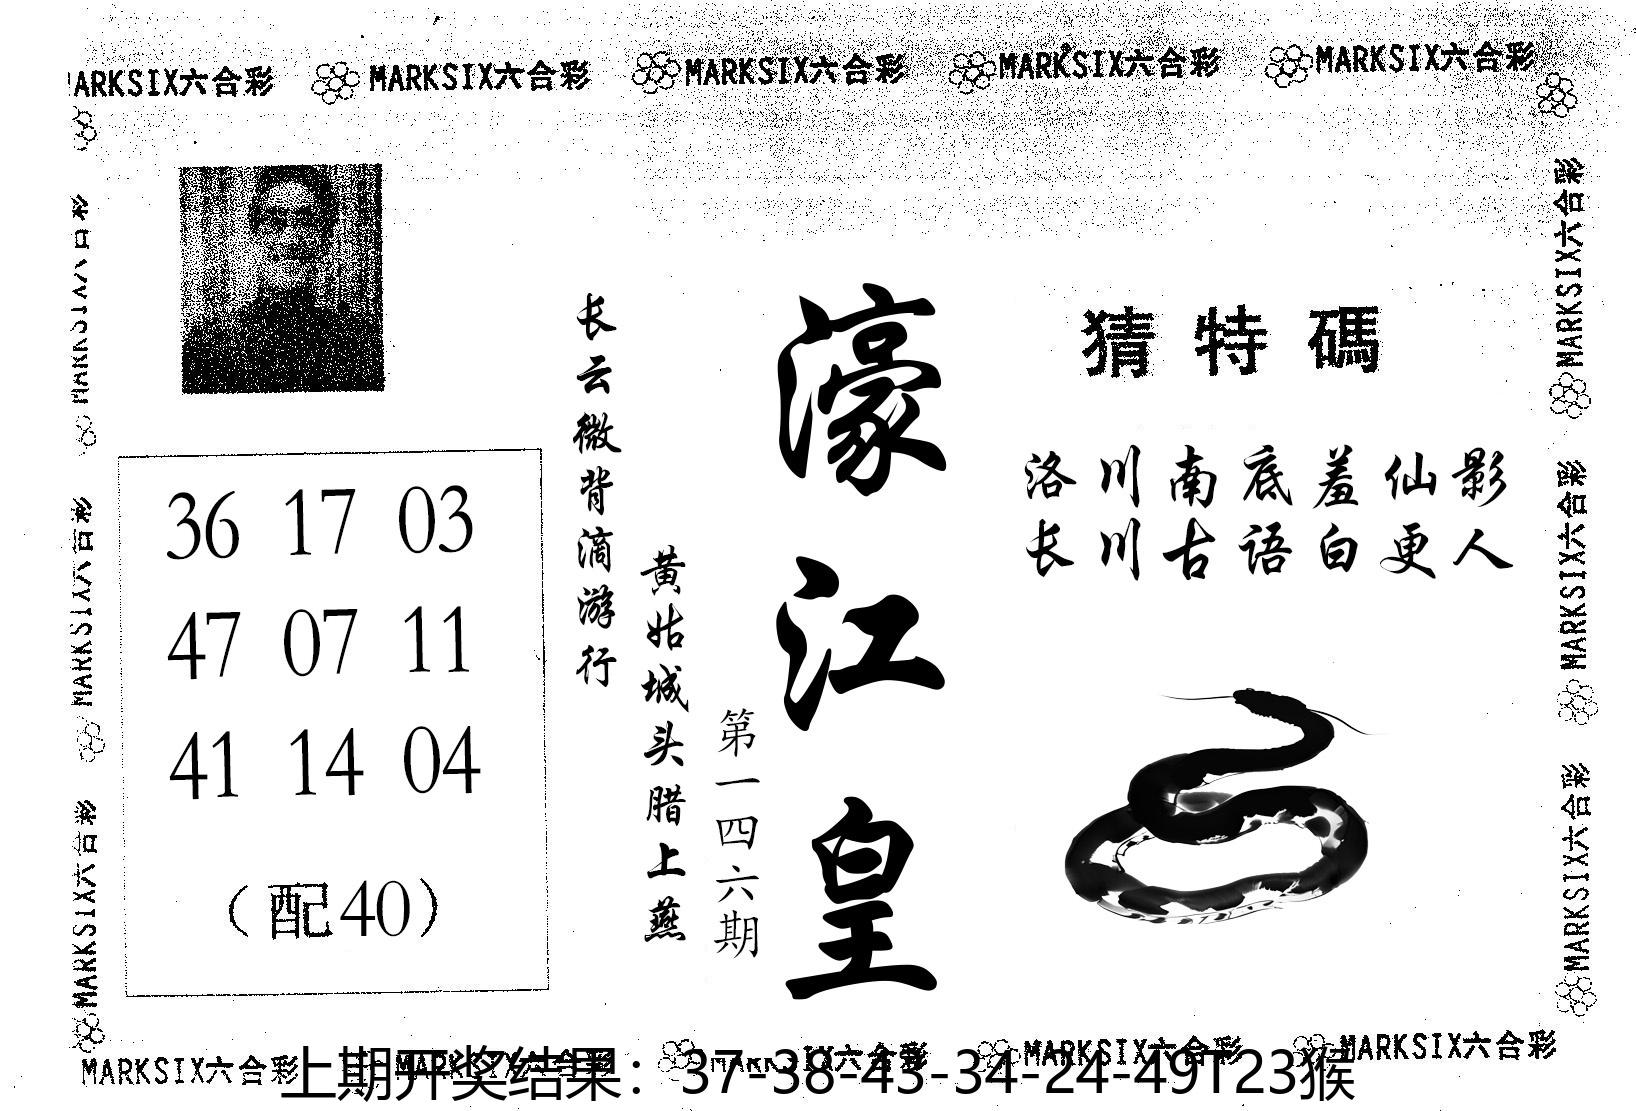 MARKSIX六合彩 MARKSIX六合彩 MARKSIX六合彩 MARKSIX六合彩 MARKSIX六合彩
猜特碼
洛川南底羞仙影
长川古语白更人
濠江皇
第一四六期
黄姑城头腊上燕
长云微背滴游行
36 17 03
47 07 11
41 14 04
（配40）
MARKSIX六合彩
MARKSIX六合彩
MARKSIX六合彩
MARKSIX六合彩
MARKSIX六合彩
MARKSIX六合彩
MARKSIX六合彩 MARKSIX六合彩 MARKSIX六合彩 MARKSIX六合彩 MARKSIX六合彩
上期开奖结果：37-38-43-34-24-49T23猴